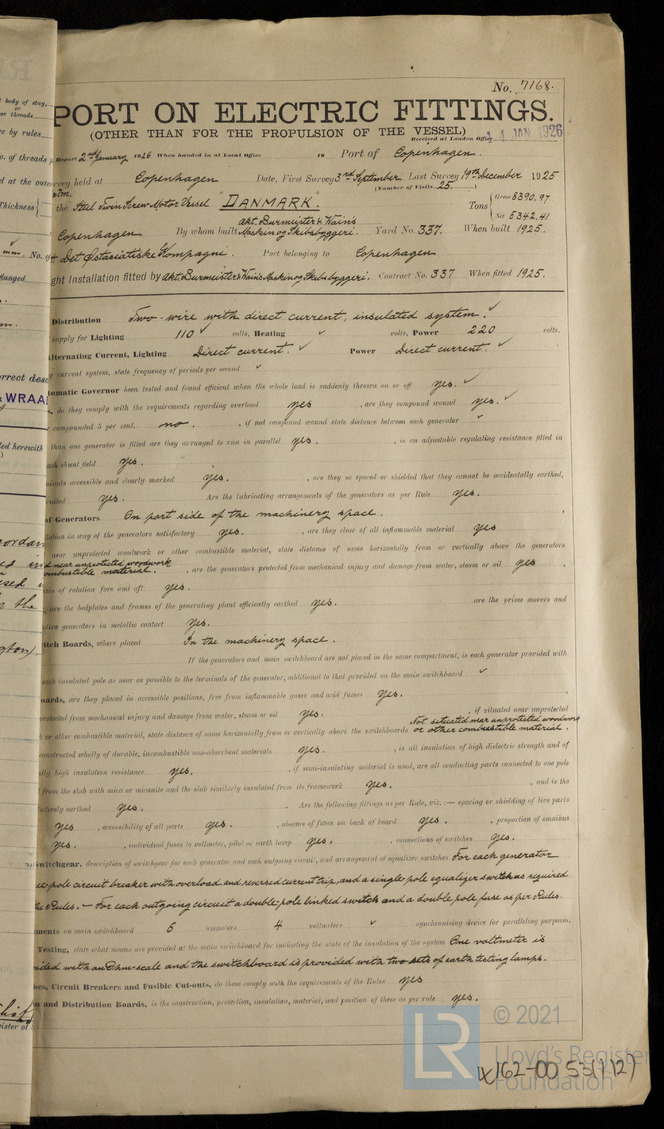 No. 7168.
PORT ON ELECTRIC FITTINGS.
(OTHER THAN FOR THE PROPULSION OF THE VESSEL)
Received at London Office 14 JAN 1926
Report 2nd January 1926 When handed in at Local Office 19 Port of Copenhagen.
rvey held at Copenhagen Date, First Survey 3rd September Last Survey 19th December 1925
(Number of Visits 25.)
the Steel Twin Screw Motor Vessel "DANMARK." Tons Gross 8390.97
Net 5342.41
Copenhagen By whom built Akt. Burmeister & Wain's Maskin og Skibsbyggeri. Yard No. 337. When built 1925.
Det Østasiatiske Kompagni. Port belonging to Copenhagen
ght Installation fitted by Akt. Burmeister & Wain's Maskin og Skibsbyggeri. Contract No. 337 When fitted 1925.
Distribution Two-wire with direct current, insulated system. ✓
upply for Lighting 110 ✓ volts, Heating ✓ volts, Power 220 volts.
lternating Current, Lighting Direct current. ✓ Power Direct current. ✓
current system, state frequency of periods per second ✓
tomatic Governor been tested and found efficient when the whole load is suddenly thrown on or off yes. ✓
, do they comply with the requirements regarding overload yes , are they compound wound yes. ✓
compounded 5 per cent. no. , if not compound wound state distance between each generator ✓
than one generator is fitted are they arranged to run in parallel yes. , is an adjustable regulating resistance fitted in
ach shunt field yes.
inals accessible and clearly marked yes. , are they so spaced or shielded that they cannot be accidentally earthed,
yes. Are the lubricating arrangements of the generators as per Rule yes.
of Generators On port side of the machinery space.
lation in way of the generators satisfactory yes. , are they clear of all inflammable material yes
near unprotected woodwork or other combustible material, state distance of same horizontally from or vertically above the generators
d near unprotected woodwork
ombustible material. , are the generators protected from mechanical injury and damage from water, steam or oil yes
xis of rotation fore and aft yes.
, are the bedplates and frames of the generating plant efficiently earthed yes. are the prime movers and
tive generators in metallic contact yes.
itch Boards, where placed In the machinery space.
If the generators and main switchboard are not placed in the same compartment, is each generator provided with
ach insulated pole as near as possible to the terminals of the generator, additional to that provided on the main switchboard ✓
oards, are they placed in accessible positions, free from inflammable gases and acid fumes yes.
rotected from mechanical injury and damage from water, steam or oil yes. , if situated near unprotected
k or other combustible material, state distance of same horizontally from or vertically above the switchboards Not situated near unprotected woodwork
or other combustible material.
onstructed wholly of durable, incombustible non-absorbent materials yes. , is all insulation of high dielectric strength and of
tly high insulation resistance yes. , if semi-insulating material is used, are all conducting parts connected to one pole
from the slab with mica or micanite and the slab similarly insulated from its framework yes. , and is the
ctively earthed yes. Are the following fittings as per Rule, viz.:— spacing or shielding of live parts
yes , accessibility of all parts yes. , absence of fuses on back of board yes. , proportion of omnibus
yes. , individual fuses to voltmeter, pilot or earth lamp yes. , connections of switches yes.
Switchgear, description of switchgear for each generator and each outgoing circuit, and arrangement of equalizer switches For each generator
pole circuit breaker with overload and reversed current trip, and a single pole equalizer switch as required
he Rules. — For each outgoing circuit a double pole linked switch and a double pole fuse as per Rules.
ments on main switchboard 6 ammeters 4 voltmeters ✓ synchronising device for paralleling purposes.
Testing, state what means are provided at the main switchboard for indicating the state of the insulation of the system One voltmeter is
ided with an Ohm-scale and the switchboard is provided with two sets of earth testing lamps.
hes, Circuit Breakers and Fusible Cut-outs, do these comply with the requirements of the Rules yes
n and Distribution Boards, is the construction, protection, insulation, material, and position of these as per rule yes.
LR
© 2021
Lloyd's Register
Foundation
W162-0053(1/2)